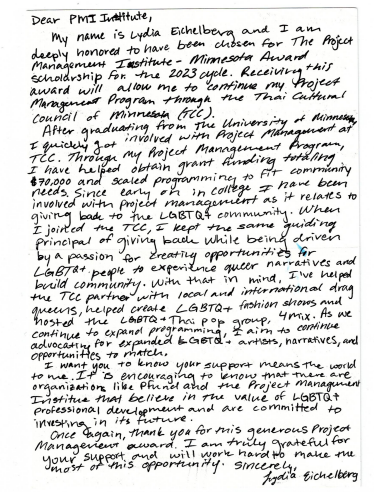 Dear PMI Institute,
My name is Lydia Eichelberg and I am
deeply honored to have been chosen for The Project
Management Institute - Minnesota Award
scholarship for the 2023 cycle. Receiving this
award will allow me to continue my Project
Management Program through the Thai Cultural
Council of Minnesota (TCC).
After graduating from the University of Minnesota,
I quickly got involved with Project Management at
TCC. Through my Project Management Program,
I have helped obtain grant funding totaling
$70,000 and scaled programming to fit community
needs. Since early on in college I have been
involved with project management as it relates to
giving back to the LGBTQ+ community. When
I joined the TCC, I kept the same guiding
principal of giving back while being driven
by a passion for creating opportunities for
LGBTQ+ people to experience queer narratives and
build community. With that in mind, I've helped
the TCC partner with local and international drag
queens, helped create LGBTQ+ fashion shows and
hosted the LGBTQ+ Thai pop group, 4mix. As we
continue to expand programming, I aim to continue
advocating for expanded LGBTQ+ artists, narratives, and
opportunities to match.
I want you to know your support means the world
to me. It is encouraging to know that there are
organizations like Pfund and the Project Management
Institue that believe in the value of LGBTQ+
professional development and are committed to
investing in its future.
Once again, thank you for this generous Project
Management award. I am truly grateful for
your support and will work hard to make the
most of this opportunity. Sincerely,
Lydia Eichelberg